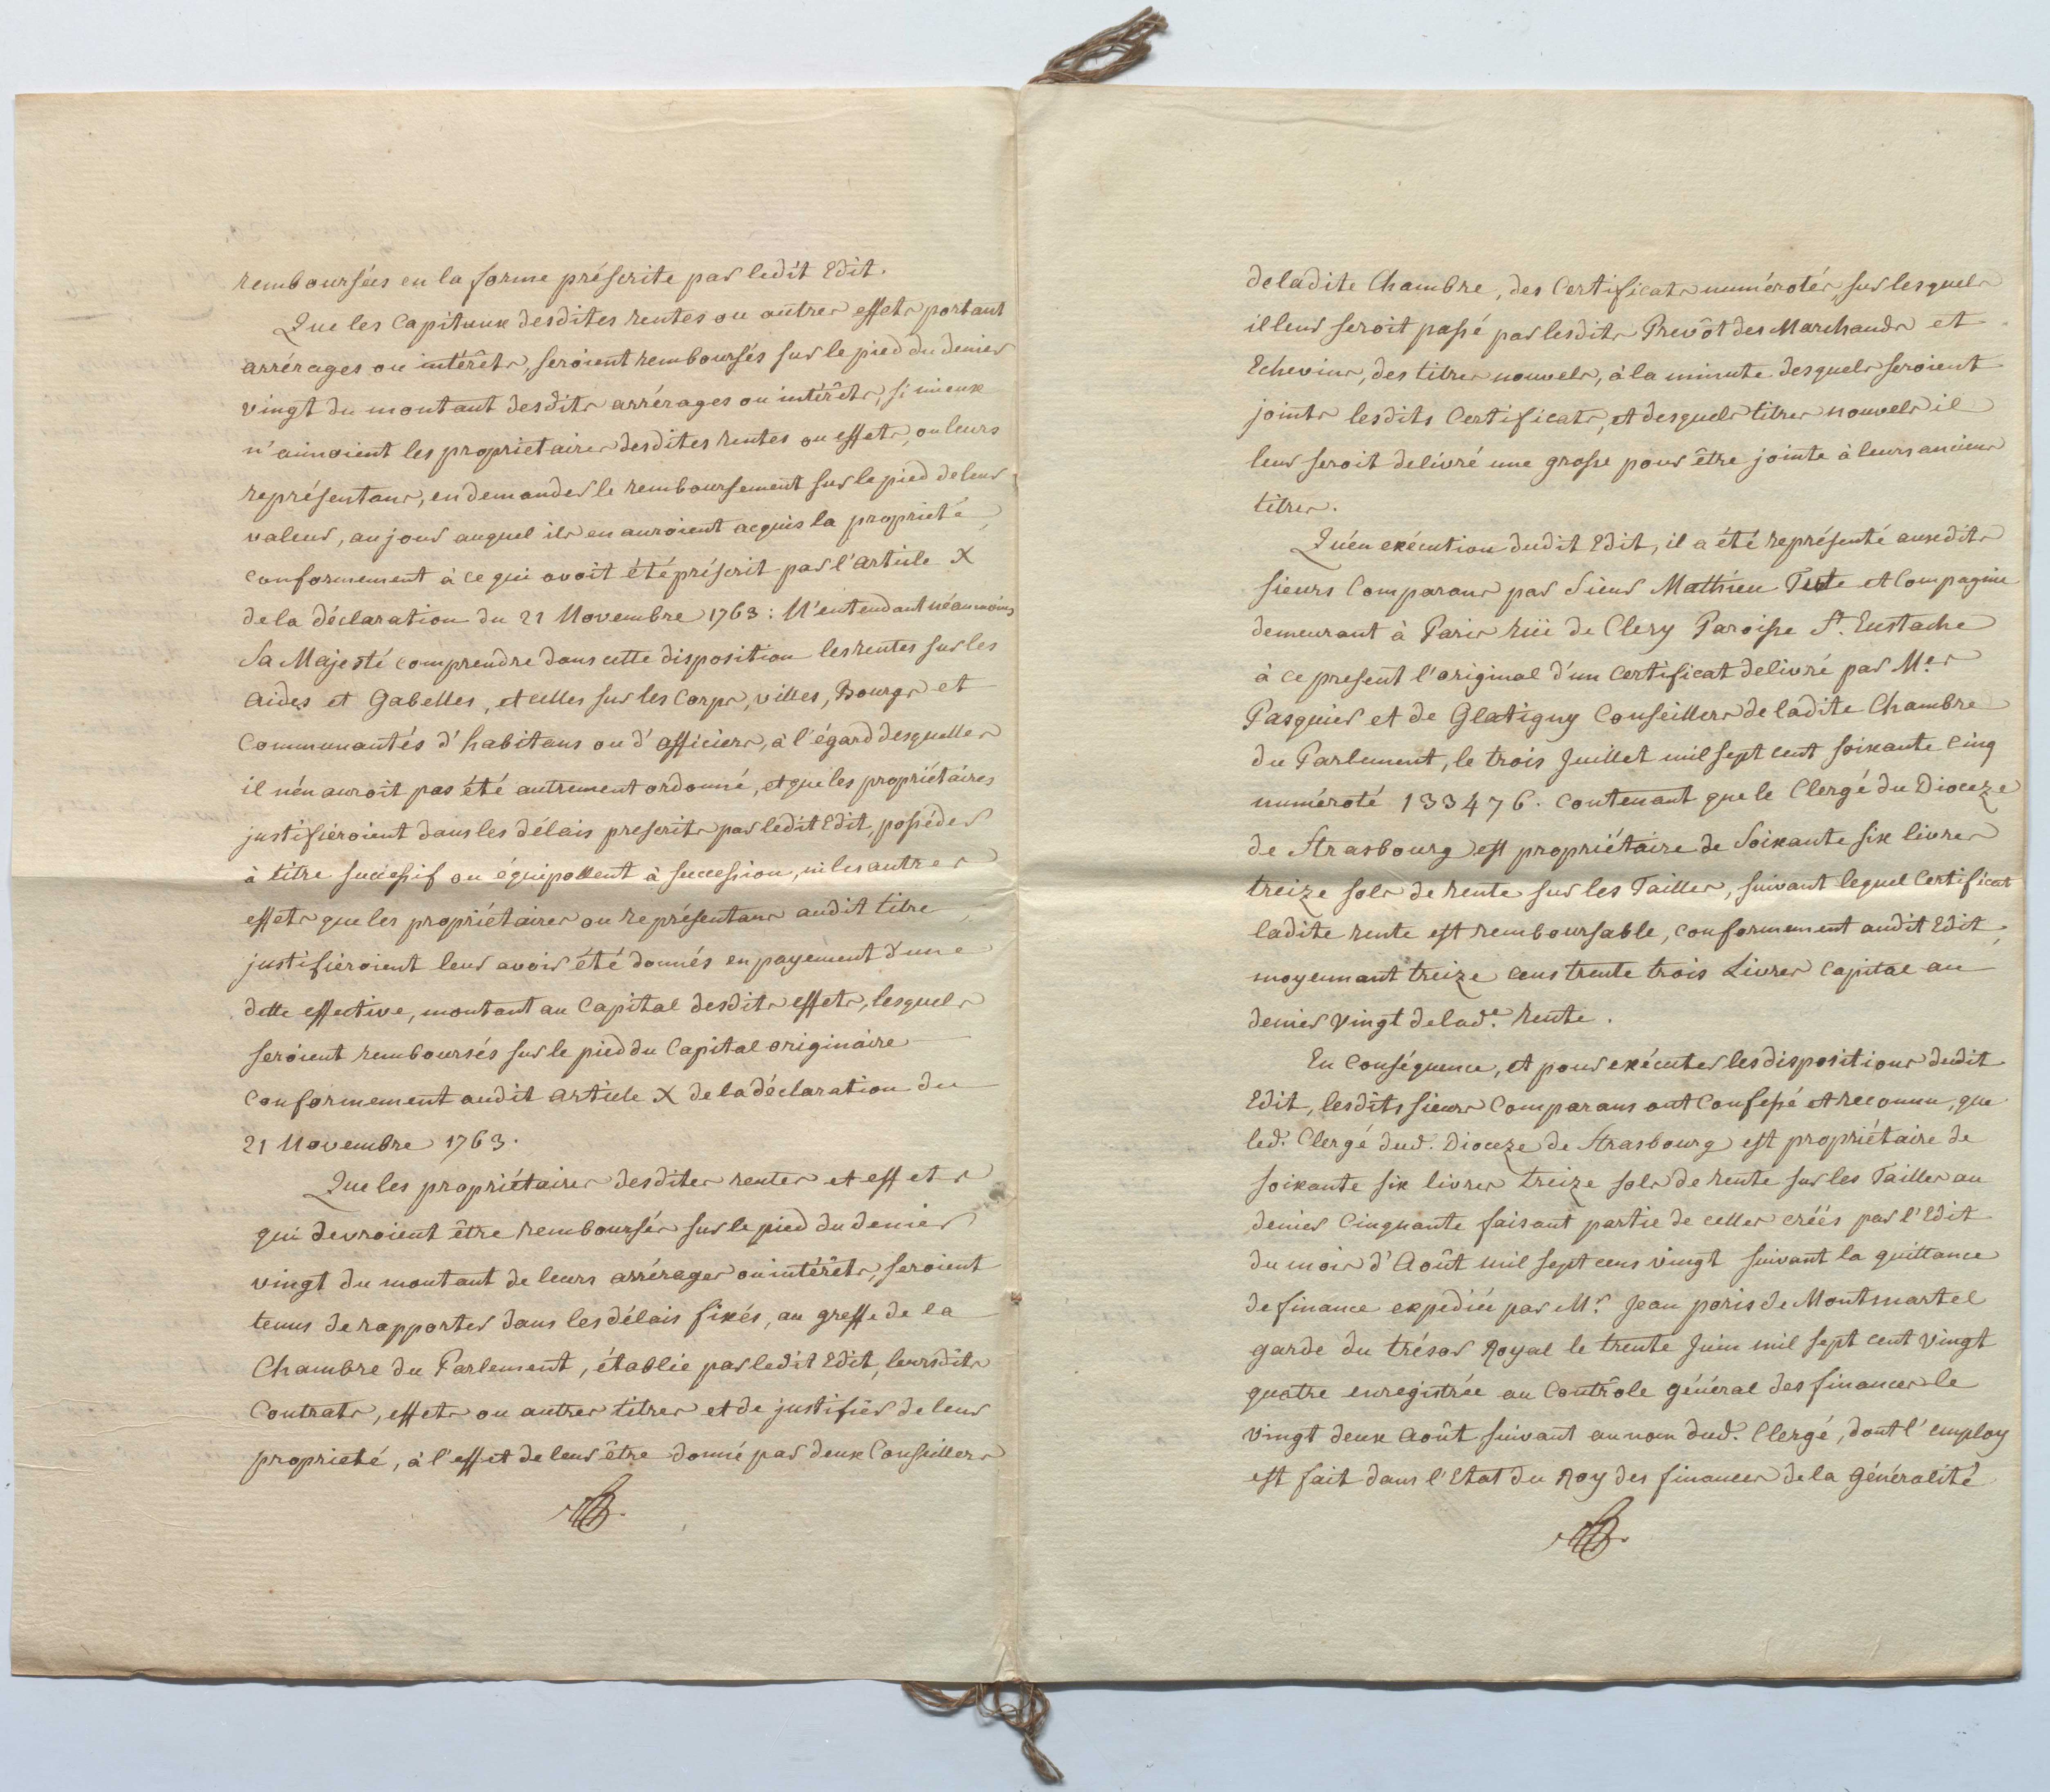 remboursées en la forme préscrite par ledit Edit.
Que les Capitaux desdites rentes ou autres effets portant
arrérages ou intérêts, seroient remboursés sur le pied du denier
vingt du montant desdits arrérages ou intérêts, si mieux
n'aimoient les proprietaires desdites rentes ou effets, ou leurs
représentans, en demander le remboursement sur le pied de leur
valeur, au jour auquel ils en auroient acquis la proprieté,
conformement à ce qui avoit été préscrit par l'article X
de la déclaration du 21 Novembre 1763: N'entendant néanmoins
Sa Majesté comprendre dans cette disposition les rentes sur les
Aides et Gabelles, et celles sur les Corps, villes, Bourgs et
Communautés d'habitans ou d'officiers, à l'égard desquelles
il n'en auroit pas été autrement ordonné, et que les propriétaires
justifiéroient dans les délais prescrits par ledit Edit, posséder
à titre successif ou équipollent à succession, ni les autres
effets que les propriétaires ou représentans audit titre
justifiéroient leur avoir été donnés en payement d'une
dette effective, montant au Capital desdits effets, lesquels
seroient remboursés sur le pied du Capital originaire
conformement audit article X de la déclaration du
21 Novembre 1763.
Que les propriétaires desdites rentes et effets
qui devroient être remboursés sur le pied du denier
vingt du montant de leurs arrérages ou intérêts, seroient
tenus de rapporter dans les délais fixés, au greffe de la
Chambre du Parlement, établie par ledit Edit, leursdits
Contrats, effets ou autres titres et de justifier de leur
proprieté, à l'effet de leur être donné par deux Conseillers
de ladite Chambre, des Certificats numérotés, sur lesquels
il leur seroit passé par lesdits Prevôt des Marchands et
Echevins, des titres nouvels, à la minute desquels seroient
joints lesdits Certificats, et desquels titres nouvels il
leur seroit delivré une grosse pour être jointe à leurs anciens
titres.
Qu'en exécution dudit Edit, il a été représenté auxdits
sieurs Comparans par Sieur Mathieu et Compagnie
demeurant à Paris rüe de Clery Paroisse St. Eustache
à ce present l'original d'un Certificat delivré par Mers
Pasquier et de Glatigny Conseillers de ladite Chambre
du Parlement, le trois Juillet mil sept cent soixante cinq
numéroté 133476. Contenant que le Clergé du Dioceze
de Strasbourg est propriétaire de Soixante six livres
treize sols de rente sur les Tailles, suivant lequel Certificat
ladite rente est remboursable, conformement audit Edit,
moyennant treize cens trente trois Livres Capital au
denier Vingt de lade. Rente.
En Conséquence, et pour exécuter les dispositions dudit
Edit, lesdits sieurs Comparans ont Confessé et reconnu, que
led. Clergé dud. Dioceze de Strasbourg est propriétaire de
soixante six livres treize sols de rente sur les Tailles au
denier Cinquante faisant partie de celles créés par l'Edit
du mois d'Août mil sept cens vingt suivant la quittance
de finance expediée par Mr. Jean paris de Montmartel
garde du trésor Royal le trente Juin mil sept cent vingt
quatre enregistrée au Contrôle général des finances le
vingt deux Août suivant au nom dud. Clergé, dont l'employ
est fait dans l'Etat du Roy des finances de la Généralité